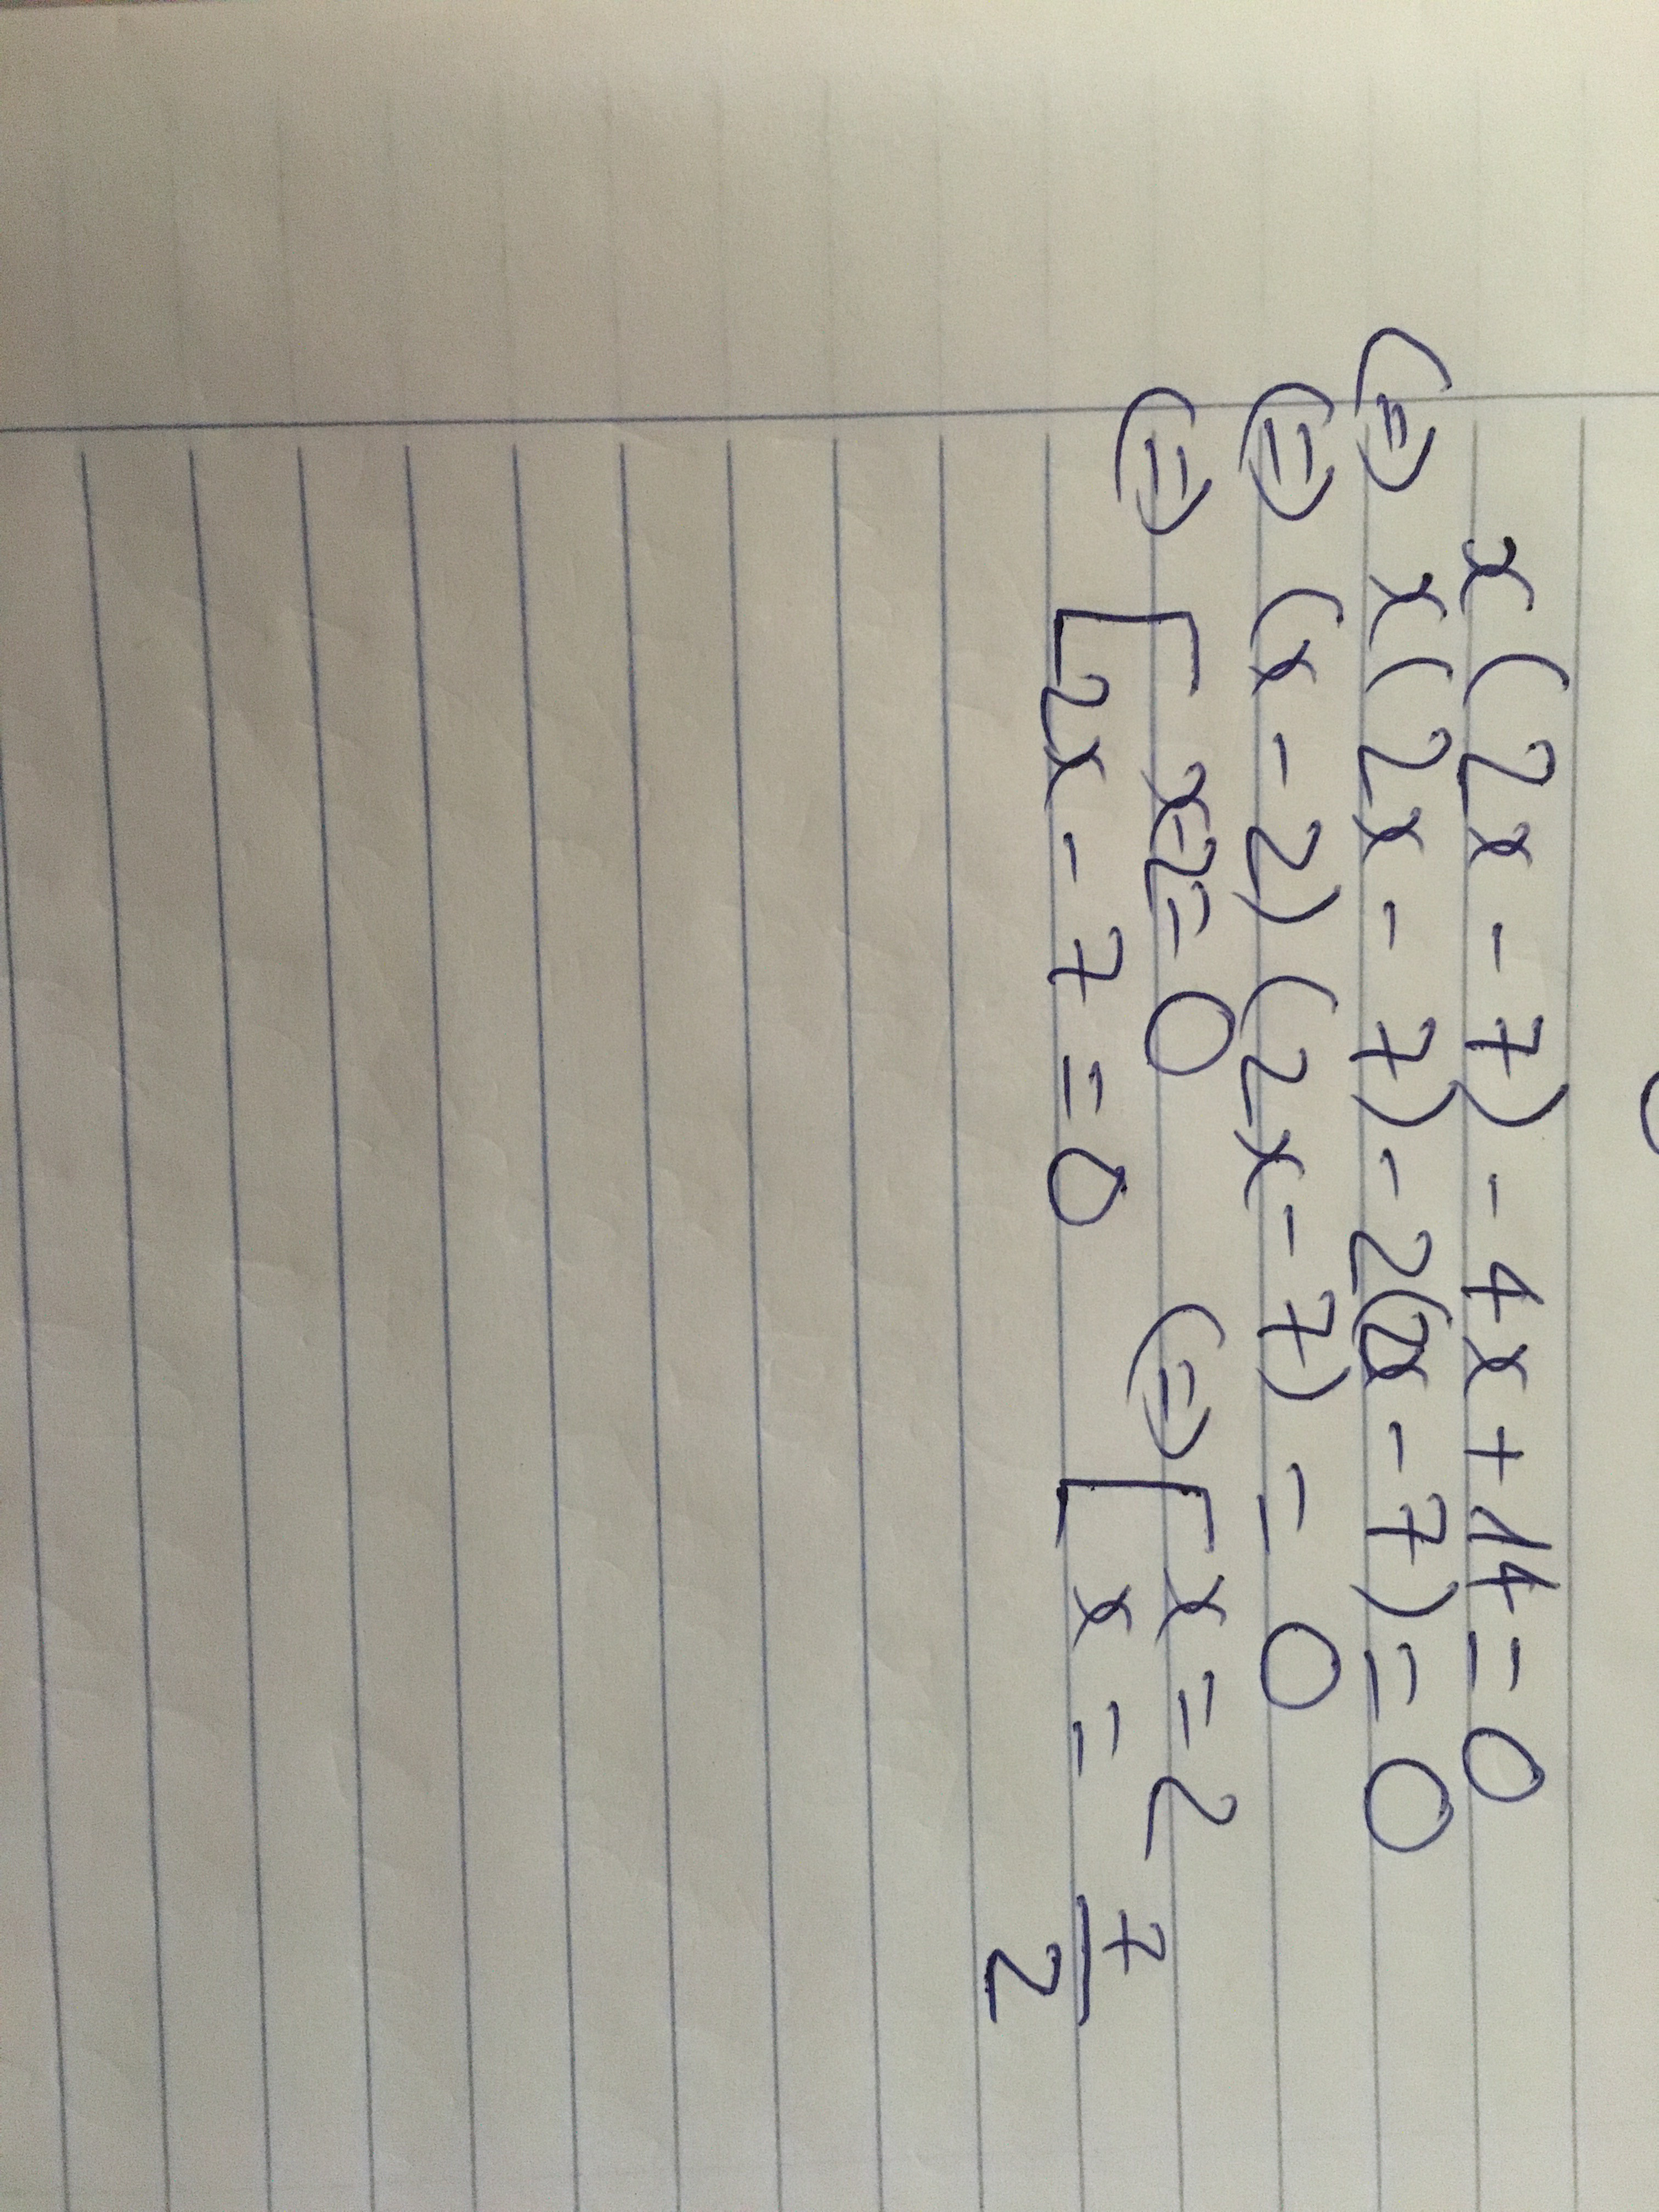 x(2x - 7) - 4x + 14 = 0
(=) x(2x - 7) - 2(2x - 7) = 0
(=) (x - 2)(2x - 7) = 0
(=) [ x-2 = 0 (=) [ x = 2
2x - 7 = 0 x = 7/2